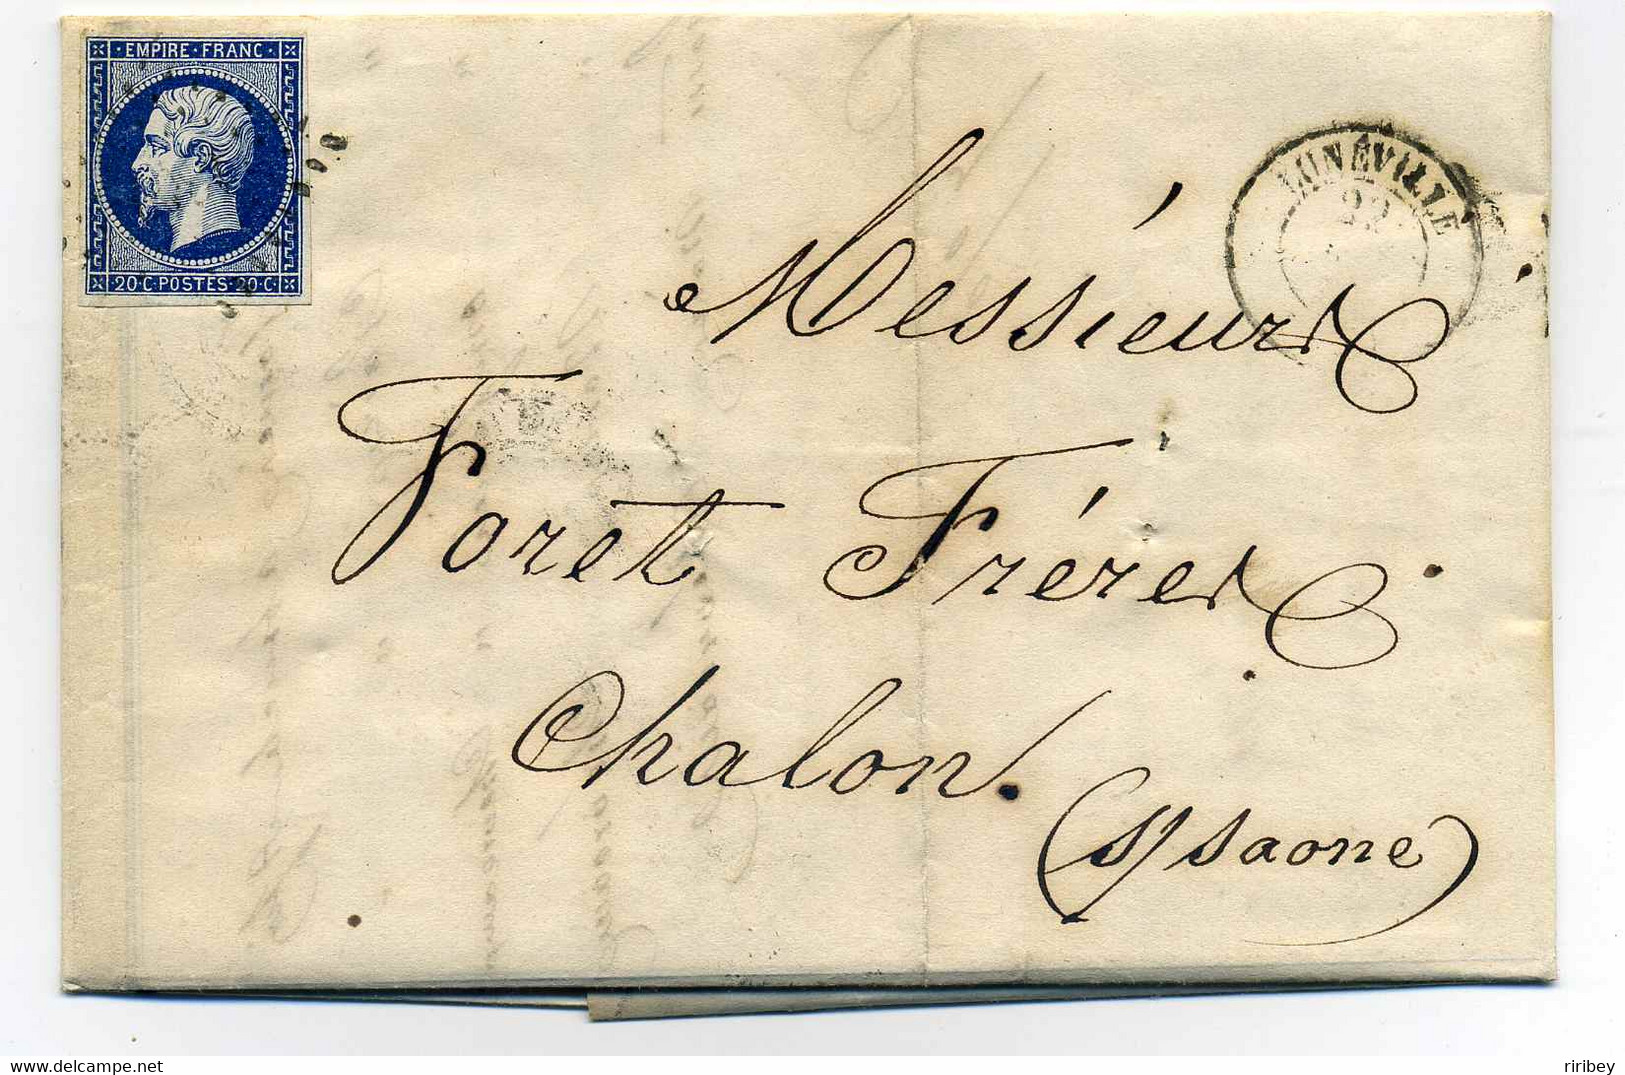 EMPIRE · FRANC ·
20 · C · POSTES · 20 · C ·
LUNÉVILLE
22
Messieurs
Foret Frères
Chalon.
(s/saone)
riribey